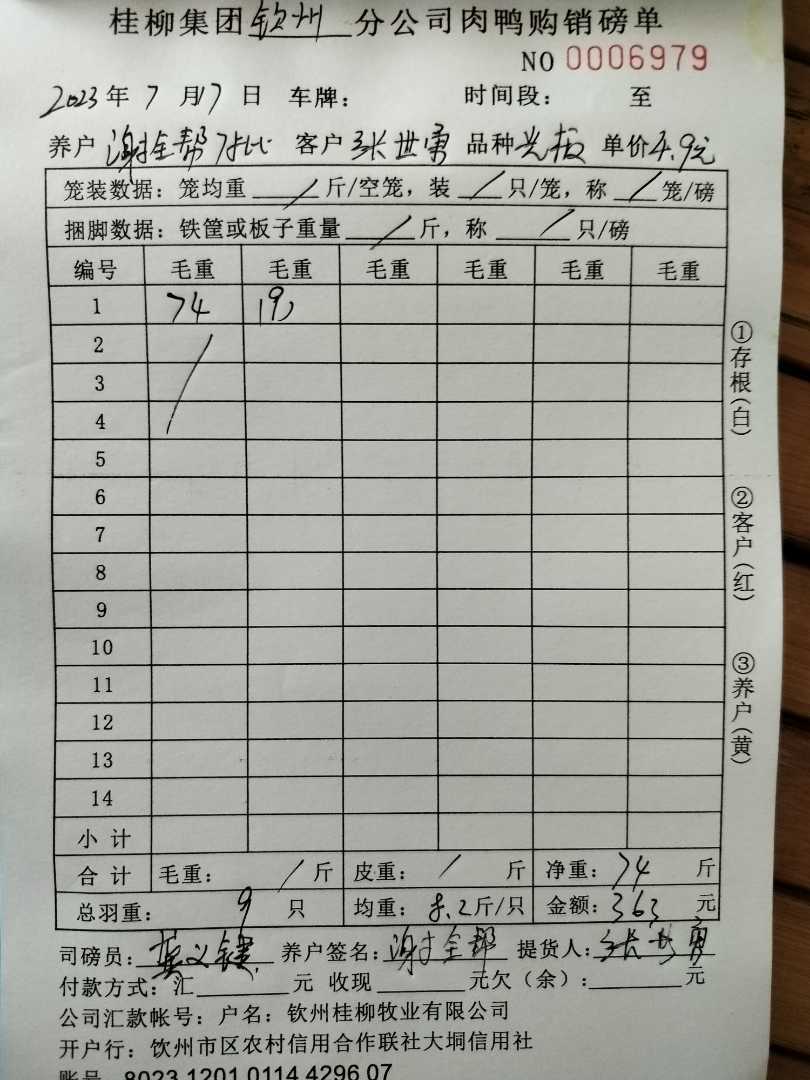 桂柳集团钦州分公司肉鸭购销磅单
NO 0006979
2023年7月17日 车牌: 时间段: 至
养户 谢全帮 对比 客户 张世勇 品种 光板 单价4.9元
笼装数据: 笼均重 / 斤/空笼, 装 / 只/笼, 称 / 笼/磅
捆脚数据: 铁筐或板子重量 / 斤, 称 / 只/磅
编号 毛重 毛重 毛重 毛重 毛重 毛重
1 74 (9)
2
3
4
5
6
7
8
9
10
11
12
13
14
小计
合计 毛重: / 斤 皮重: / 斤 净重: 74 斤
总羽重: 9 只 均重: 8.2斤/只 金额: 363 元
司磅员: 养户签名: 谢全帮 提货人: 张世勇
付款方式: 汇 元 收现 元欠(余): 元
公司汇款帐号: 户名: 钦州桂柳牧业有限公司
开户行: 钦州市区农村信用合作联社大垌信用社
账号 8023 1201 0114 4296 07
①存根(白)
②客户(红)
③养户(黄)